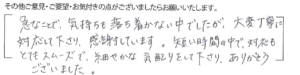 その他ご意見・ご要望・お気付きの点がございましたらお願いいたします。
急なことで、気持ちも落ち着かない中でしたが、大変丁寧に
対応して下さり、感謝しています。短い時間の中で、対応も
とてもスムーズで、細やかな気配りをして下さり、ありがとう
ございました。